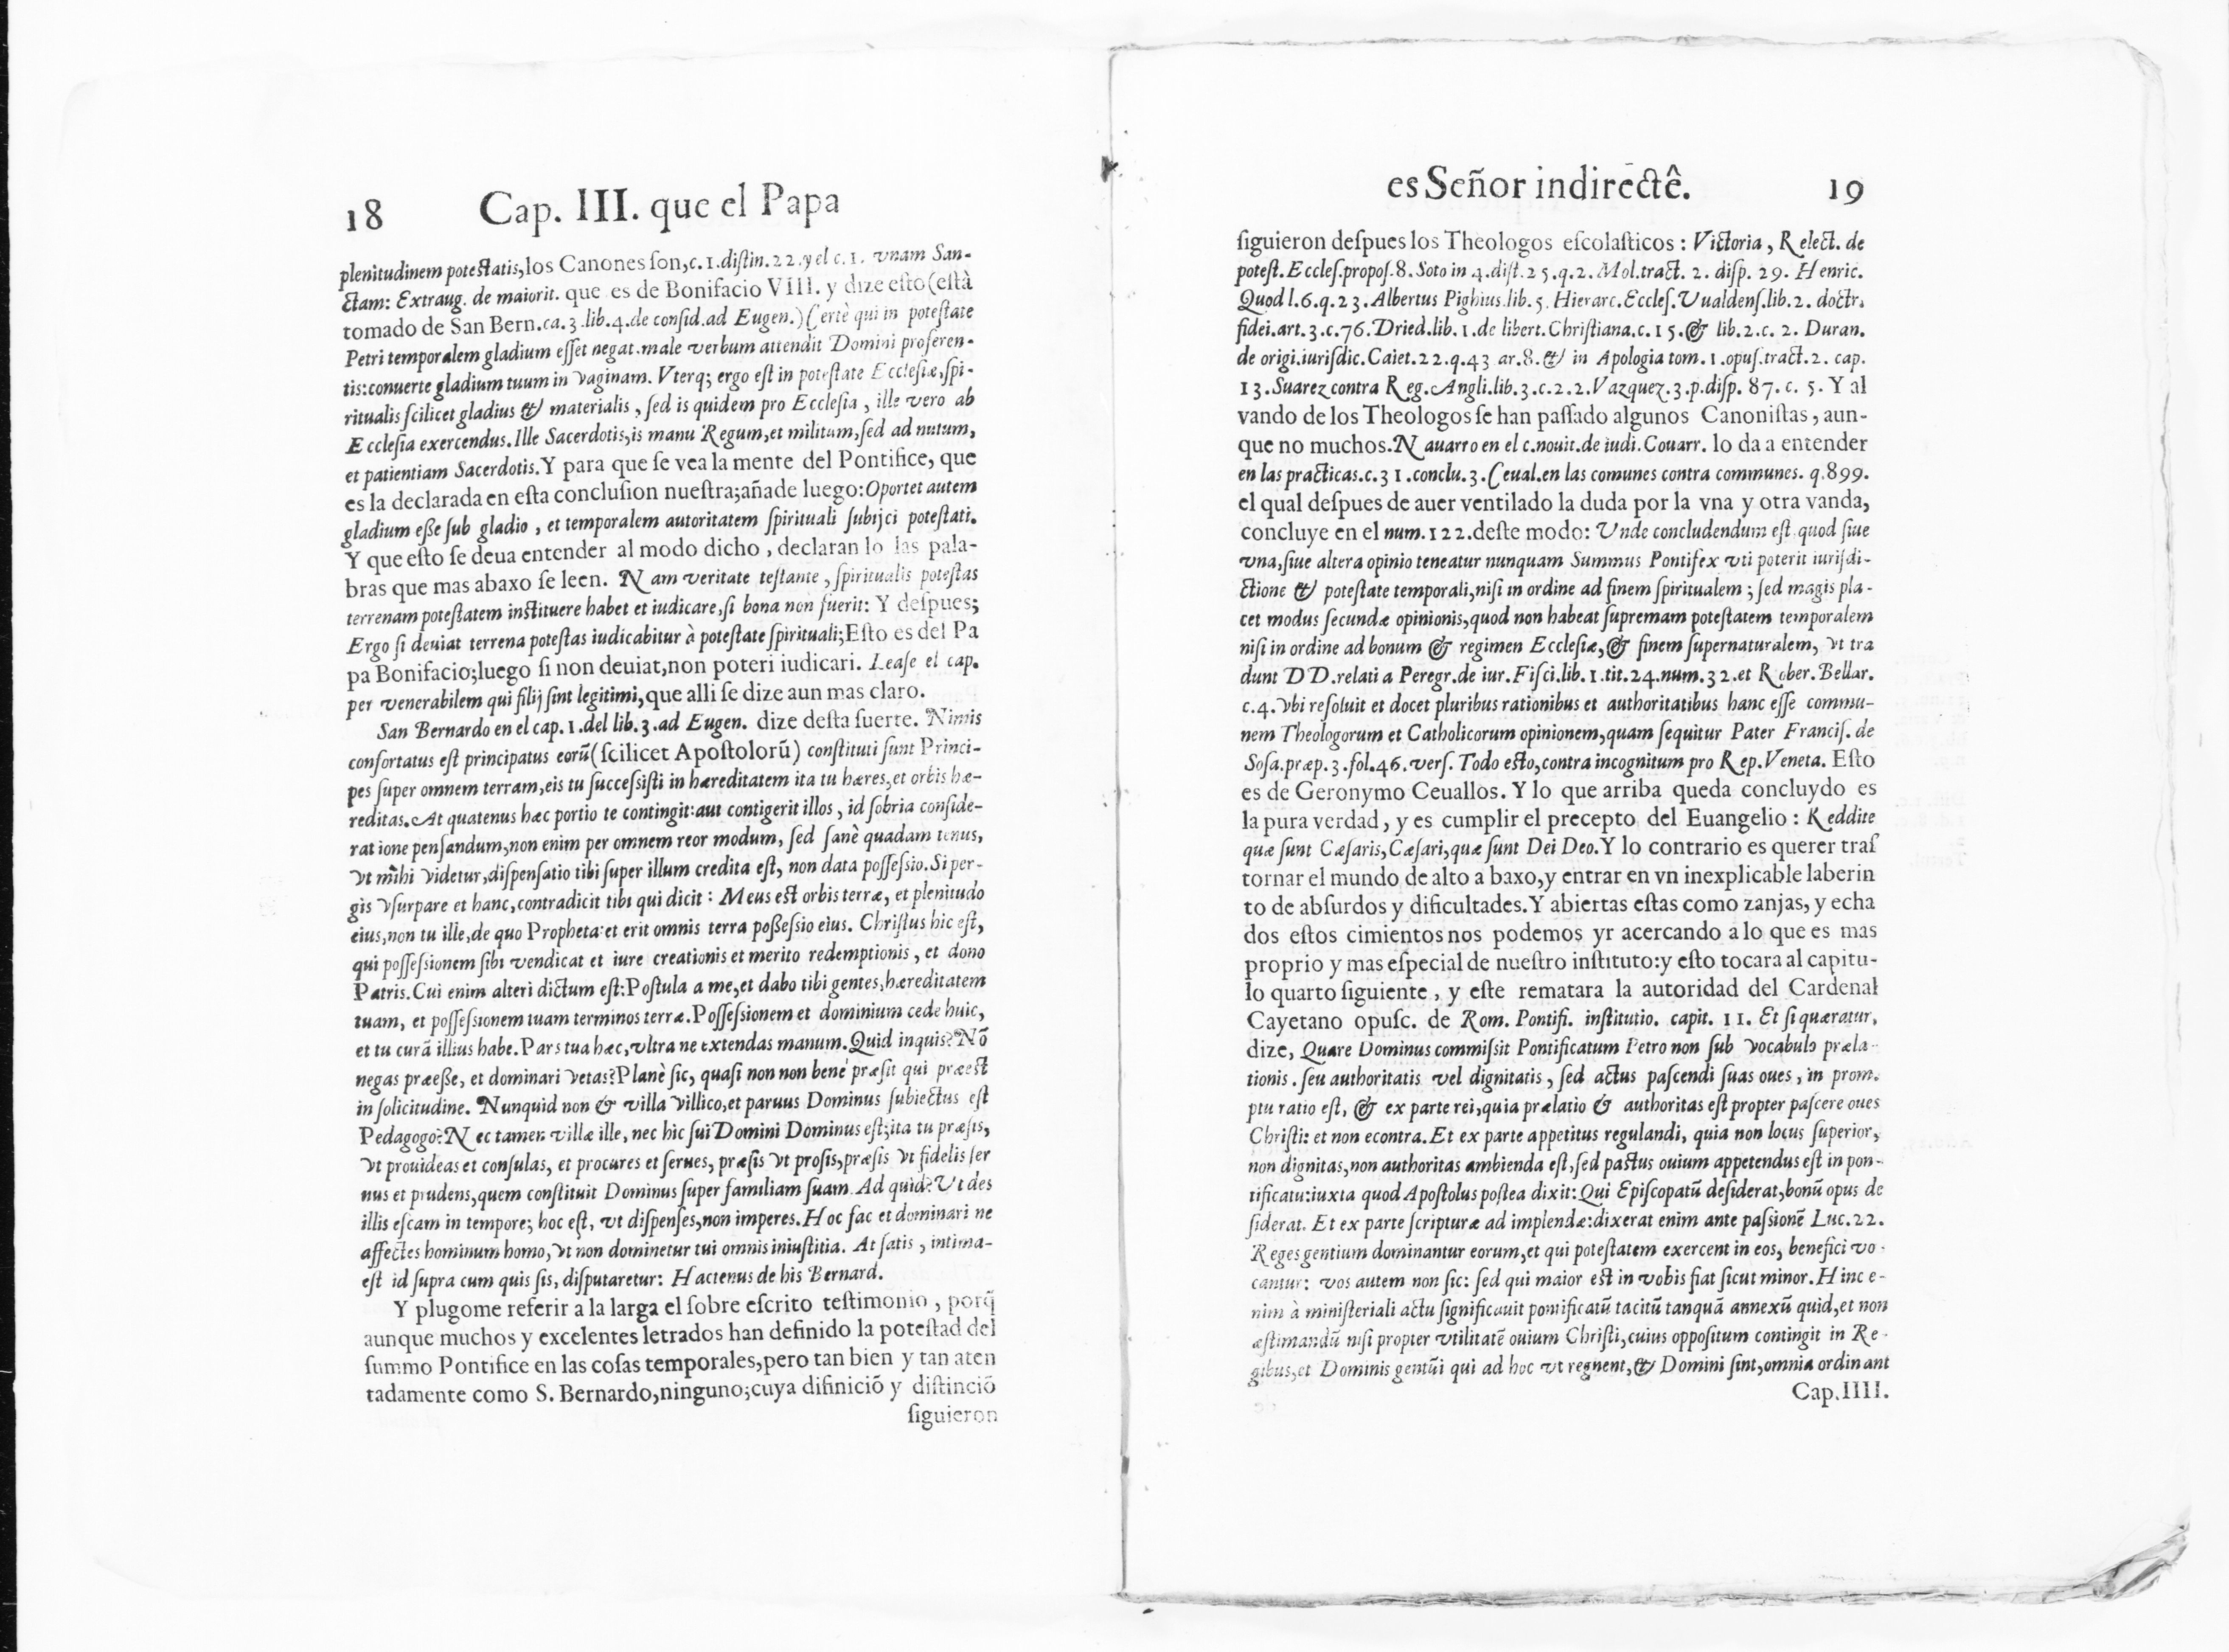 18 Cap. III. que el Papa
plenitudinem poteſtatis, los Canones ſon, c. 1. diſtin. 22. y el c. 1. vnam San-
ctam: Extraug. de maiorit. que es de Bonifacio VIII. y dize eſto (eſtà
tomado de San Bern. ca. 3. lib. 4. de conſid. ad Eugen.) Certè qui in poteſtate
Petri temporalem gladium eſſet negat. male verbum attendit Domini proferen-
tis: conuerte gladium tuum in vaginam. Vterq; ergo eſt in poteſtate Eccleſiæ, ſpi-
ritualis ſcilicet gladius & materialis, ſed is quidem pro Eccleſia, ille vero ab
Eccleſia exercendus. Ille Sacerdotis, is manu Regum, et militum, ſed ad nutum,
et patientiam Sacerdotis. Y para que ſe vea la mente del Pontifice, que
es la declarada en eſta concluſion nueſtra; añade luego: Oportet autem
gladium eſſe ſub gladio, et temporalem autoritatem ſpirituali ſubijci poteſtati.
Y que eſto ſe deua entender al modo dicho, declaran lo las pala-
bras que mas abaxo ſe leen. Nam veritate teſtante, ſpiritualis poteſtas
terrenam poteſtatem inſtituere habet et iudicare, ſi bona non fuerit: Y deſpues;
Ergo ſi deuiat terrena poteſtas iudicabitur à poteſtate ſpirituali; Eſto es del Pa
pa Bonifacio; luego ſi non deuiat, non poteri iudicari. Leaſe el cap.
per venerabilem qui filij ſint legitimi, que alli ſe dize aun mas claro.
San Bernardo en el cap. 1. del lib. 3. ad Eugen. dize deſta ſuerte. Nimis
confortatus eſt principatus eorũ (ſcilicet Apoſtolorũ) conſtituti ſunt Princi-
pes ſuper omnem terram, eis tu ſucceſsiſti in hæreditatem ita tu hæres, et orbis hæ-
reditas. At quatenus hæc portio te contingit: aut contigerit illos, id ſobria conſide-
ratione penſandum, non enim per omnem reor modum, ſed ſanè quadam tenus,
vt mihi videtur, diſpenſatio tibi ſuper illum credita eſt, non data poſſeſsio. Si per-
gis vſurpare et hanc, contradicit tibi qui dicit: Meus eſt orbis terræ, et plenitudo
eius, non tu ille, de quo Propheta: et erit omnis terra poſſeſsio eius. Chriſtus hic eſt,
qui poſſeſsionem ſibi vendicat et iure creationis et merito redemptionis, et dono
Patris. Cui enim alteri dictum eſt: Poſtula a me, et dabo tibi gentes, hæreditatem
tuam, et poſſeſsionem tuam terminos terræ. Poſſeſsionem et dominium cede huic,
et tu curã illius habe. Pars tua hæc, vltra ne extendas manum. Quid inquis? Nõ
negas præeſſe, et dominari vetas? Planè ſic, quaſi non non bene præſit qui præeſt
in ſolicitudine. Nunquid non & villa villico, et paruus Dominus ſubiectus eſt
Pedagogo? Nec tamen villæ ille, nec hic ſui Domini Dominus eſt; ita tu præſis,
vt prouideas et conſulas, et procures et ſerues, præſis vt proſis, præſis vt fidelis ſer
nus et prudens, quem conſtituit Dominus ſuper familiam ſuam. Ad quid? Vt des
illis eſcam in tempore; hoc eſt, vt diſpenſes, non imperes. Hoc fac et dominari ne
affectes hominum homo, vt non dominetur tui omnis iniuſtitia. At ſatis, intima-
eſt id ſupra cum quis ſis, diſputaretur: Hactenus de his Bernard.
Y plugome referir a la larga el ſobre eſcrito teſtimonio, porq̃
aunque muchos y excelentes letrados han definido la poteſtad del
ſummo Pontifice en las coſas temporales, pero tan bien y tan aten
tadamente como S. Bernardo, ninguno; cuya difinició y diſtinciõ
ſiguieron
es Señor indirectê. 19
ſiguieron deſpues los Theologos eſcolaſticos: Victoria, Relect. de
poteſt. Eccleſ. propoſ. 8. Soto in 4. diſt. 25. q. 2. Mol. tract. 2. diſp. 29. Henric.
Quod l. 6. q. 23. Albertus Pighius. lib. 5. Hierarc. Eccleſ. Vualdenſ. lib. 2. doctr.
fidei. art. 3. c. 76. Dried. lib. 1. de libert. Chriſtiana. c. 15. & lib. 2. c. 2. Duran.
de origi. iuriſdic. Caiet. 22. q. 43 ar. 8. & in Apologia tom. 1. opuſ. tract. 2. cap.
13. Suarez contra Reg. Angli. lib. 3. c. 2. 2. Vazquez. 3. p. diſp. 87. c. 5. Y al
vando de los Theologos ſe han paſſado algunos Canoniſtas, aun-
que no muchos. Nauarro en el c. nouit. de iudi. Couarr. lo da a entender
en las practicas. c. 31. conclu. 3. Ceual. en las comunes contra communes. q. 899.
el qual deſpues de auer ventilado la duda por la vna y otra vanda,
concluye en el num. 122. deſte modo: Vnde concludendum eſt quod ſiue
vna, ſiue altera opinio teneatur nunquam Summus Pontifex vti poterit iuriſdi-
ctione & poteſtate temporali, niſi in ordine ad finem ſpiritualem; ſed magis pla-
cet modus ſecundæ opinionis, quod non habeat ſupremam poteſtatem temporalem
niſi in ordine ad bonum & regimen Eccleſiæ, & finem ſupernaturalem, vt tra
dunt DD. relati a Peregr. de iur. Fiſci. lib. 1. tit. 24. num. 32. et Rober. Bellar.
c. 4. vbi reſoluit et docet pluribus rationibus et authoritatibus hanc eſſe commu-
nem Theologorum et Catholicorum opinionem, quam ſequitur Pater Franciſ. de
Soſa. præp. 3. fol. 46. verſ. Todo eſto, contra incognitum pro Rep. Veneta. Eſto
es de Geronymo Ceuallos. Y lo que arriba queda concluydo es
la pura verdad, y es cumplir el precepto del Euangelio: Reddite
quæ ſunt Cæſaris, Cæſari, quæ ſunt Dei Deo. Y lo contrario es querer traſ
tornar el mundo de alto a baxo, y entrar en vn inexplicable laberin
to de abſurdos y dificultades. Y abiertas eſtas como zanjas, y echa
dos eſtos cimientos nos podemos yr acercando a lo que es mas
proprio y mas eſpecial de nueſtro inſtituto: y eſto tocara al capitu-
lo quarto ſiguiente, y eſte rematara la autoridad del Cardenal
Cayetano opuſc. de Rom. Pontifi. inſtitutio. capit. 11. Et ſi quæratur,
dize, Quare Dominus commiſsit Pontificatum Petro non ſub vocabulo præla-
tionis. ſeu authoritatis vel dignitatis, ſed actus paſcendi ſuas oues, in prom-
ptu ratio eſt, & ex parte rei, quia prælatio & authoritas eſt propter paſcere oues
Chriſti: et non econtra. Et ex parte appetitus regulandi, quia non locus ſuperior,
non dignitas, non authoritas ambienda eſt, ſed paſtus ouium appetendus eſt in pon-
tificatu: iuxta quod Apoſtolus poſtea dixit: Qui Epiſcopatũ deſiderat, bonũ opus de
ſiderat. Et ex parte ſcripturæ ad implendæ: dixerat enim ante paſsionẽ Luc. 22.
Reges gentium dominantur eorum, et qui poteſtatem exercent in eos, benefici vo-
cantur: vos autem non ſic: ſed qui maior eſt in vobis fiat ſicut minor. Hinc e-
nim à miniſteriali actu ſignificauit pontificatũ tacitũ tanquã annexũ quid, et non
æſtimandũ niſi propter vtilitatẽ ouium Chriſti, cuius oppoſitum contingit in Re-
gibus, et Dominis gentũi qui ad hoc vt regnent, & Domini ſint, omnia ordinant
Cap. IIII.